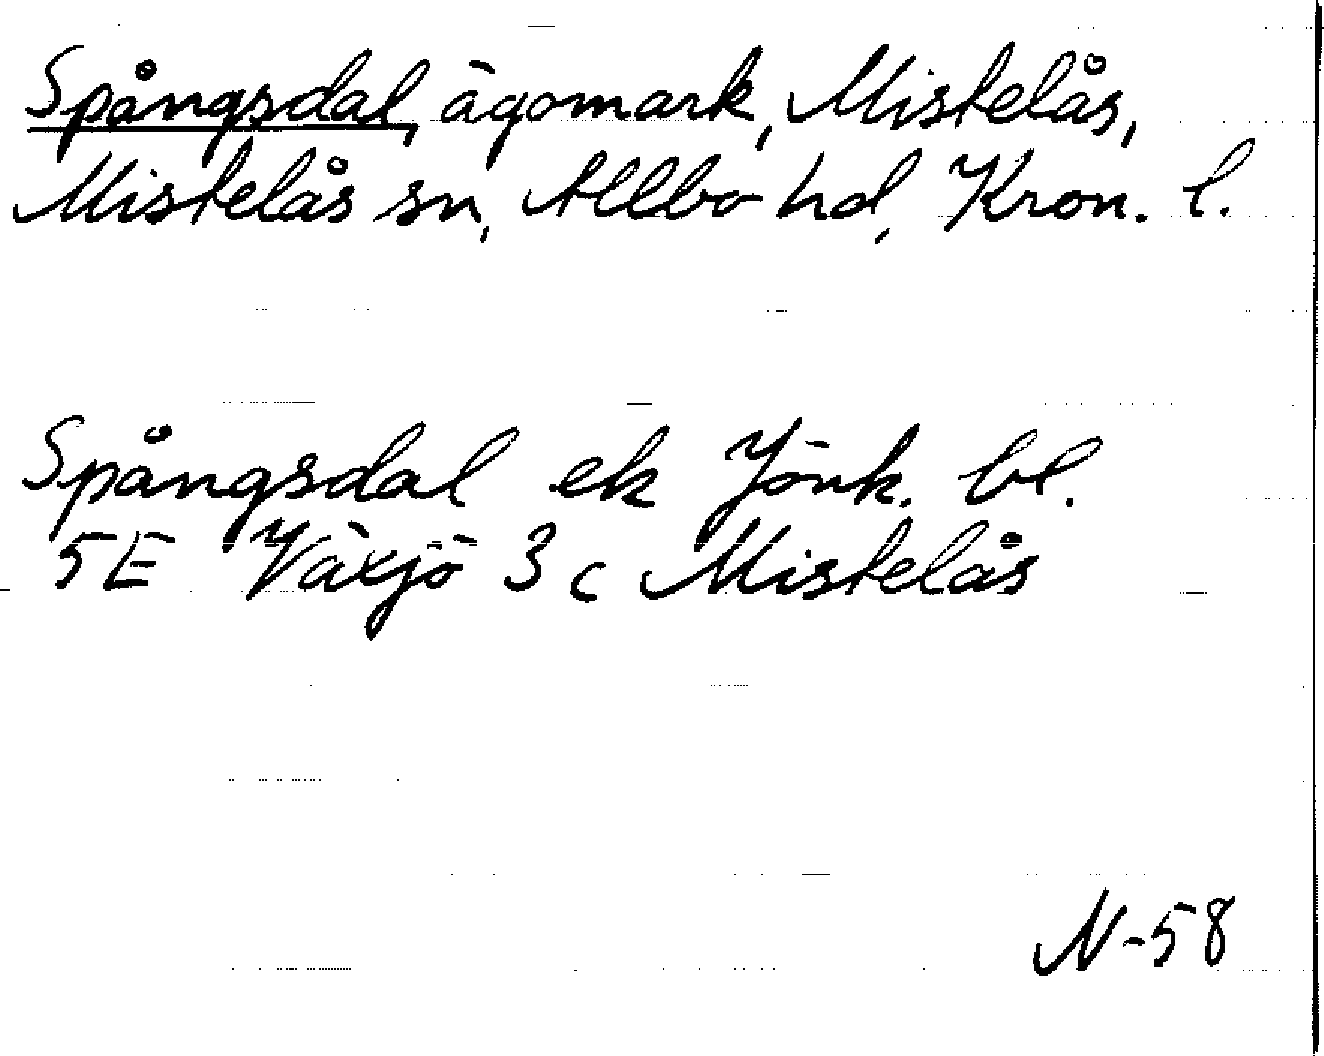 Spångsdal, ägomark, Mistelås,
Mistelås sn, Allbo hd, Kron. l.
Spångsdal ek Jönk. bl.
5E Växjö 3c Mistelås
N-58